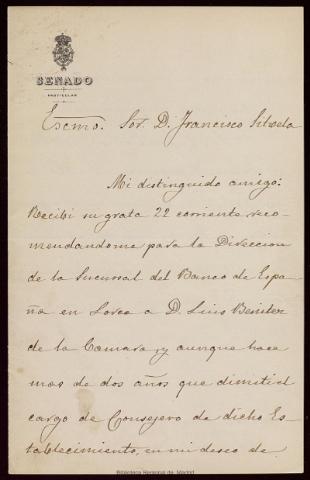 SENADO
PARTICULAR
Escmo. Sor. D. Francisco Silvela
Mi distinguido amigo:
Recibi su grata 22 corriente reco-
mendandome para la Direccion
de la Sucursal del Banco de Espa-
ña en Lorca a D. Luis Benitez
de la Camara, y aunque hace
mas de dos años que dimiti el
cargo de Consejero de dicho Es-
tablecimiento, en mi deseo de
Biblioteca Regional de Madrid